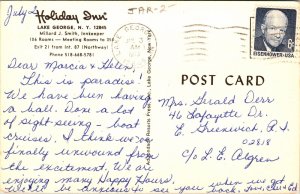 July 2
Holiday Inn®
LAKE GEORGE, N. Y. 12845
Millard J. Smith, Innkeeper
106 Rooms — Meeting Rooms to 350
Exit 21 from Int. 87 (Northway)
Phone 518-668-5781
Dear Marcia & Helen,
This is paradise!
We have been having
a ball. Done a lot
of sight seeing - boat
cruises. I think we
finally unwound from
the excitement. We are
enjoying many Happy Hours.
We'll be anxious to see you back when we get
LAKE GEORGE
EISENHOWER·USA
POST CARD
Mrs. Gerald Derr
46 Lafayette Dr.
E. Greenwich, R. I.
02818
c/o L. E. Ahlgren